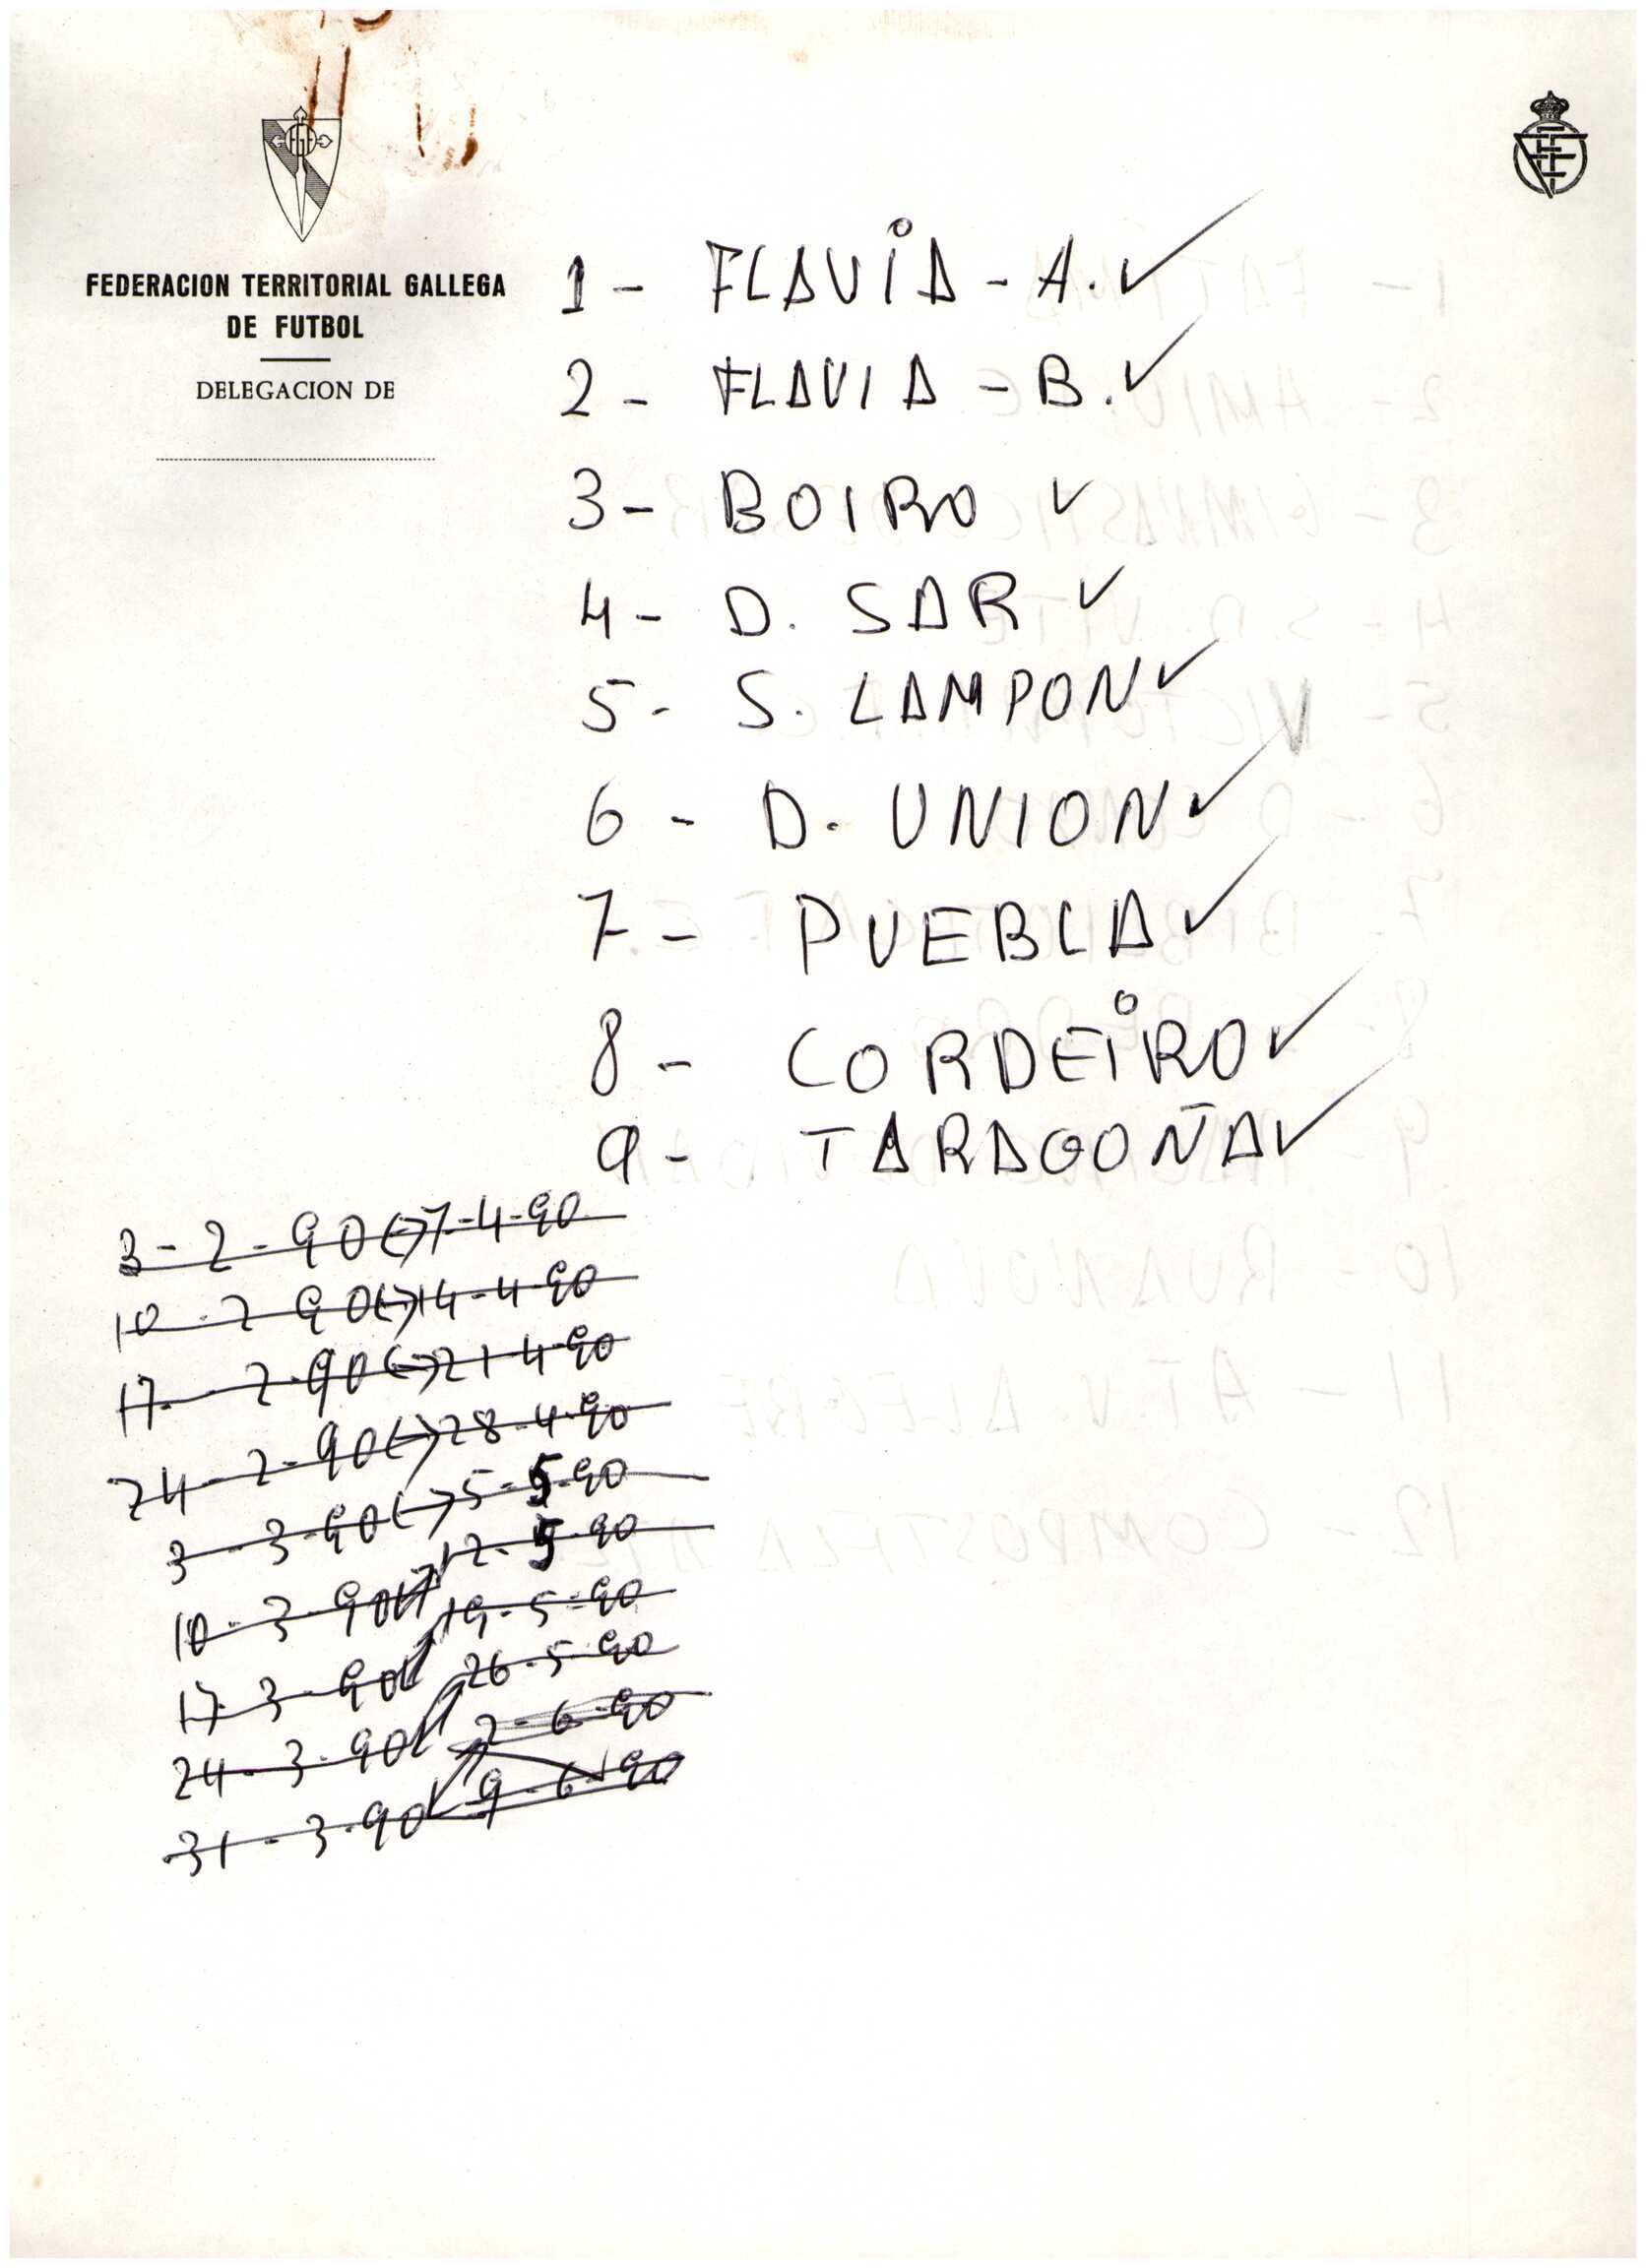 FEDERACION TERRITORIAL GALLEGA
DE FUTBOL
DELEGACION DE
1 - FLAVIA - A.
2 - FLAVIA - B.
3 - BOIRO
4 - D. SAR
5 - S. LAMPON
6 - D. UNION
7 - PUEBLA
8 - CORDEIRO
9 - TARAGOÑA
3 - 2 - 90 <-> 7-4-90
10 - 2 90 <-> 14-4-90
17 - 2-90 <-> 21-4-90
24 - 2-90 <-> 28-4-90
3 - 3-90 <-> 5-5-90
10-3-90 <-> 12-5-90
17-3-90 19-5-90
24-3-90 26-5-90
31-3-90 2-6-90
9-6-90